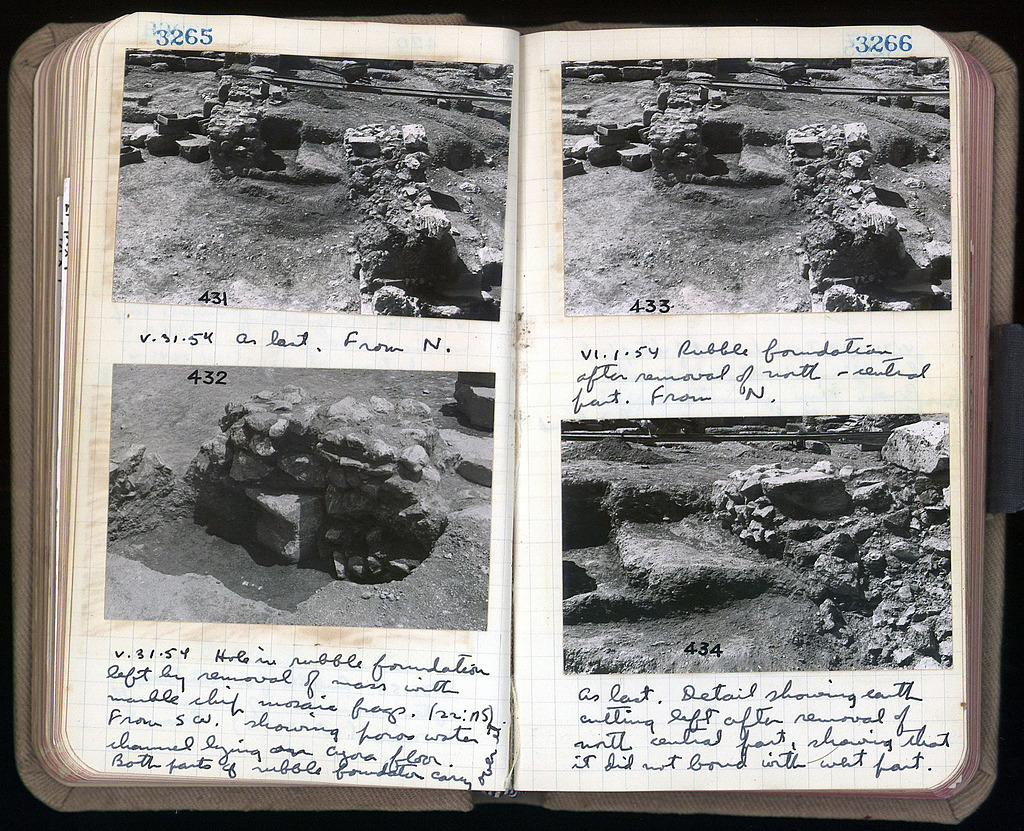 3265
431
v.31.54 as last. From N.
432
v.31.54 Hole in rubble foundation
left by removal of mass with
marble chip mosaic frags.
From SW. showing poros water
channel lying over agora floor.
Both parts of rubble foundation carry over
3266
433
VI.1.54 Rubble foundation
after removal of north-central
part. From N.
434
as last. Detail showing earth
cutting left after removal of
north central part, showing that
it did not bond with west part.